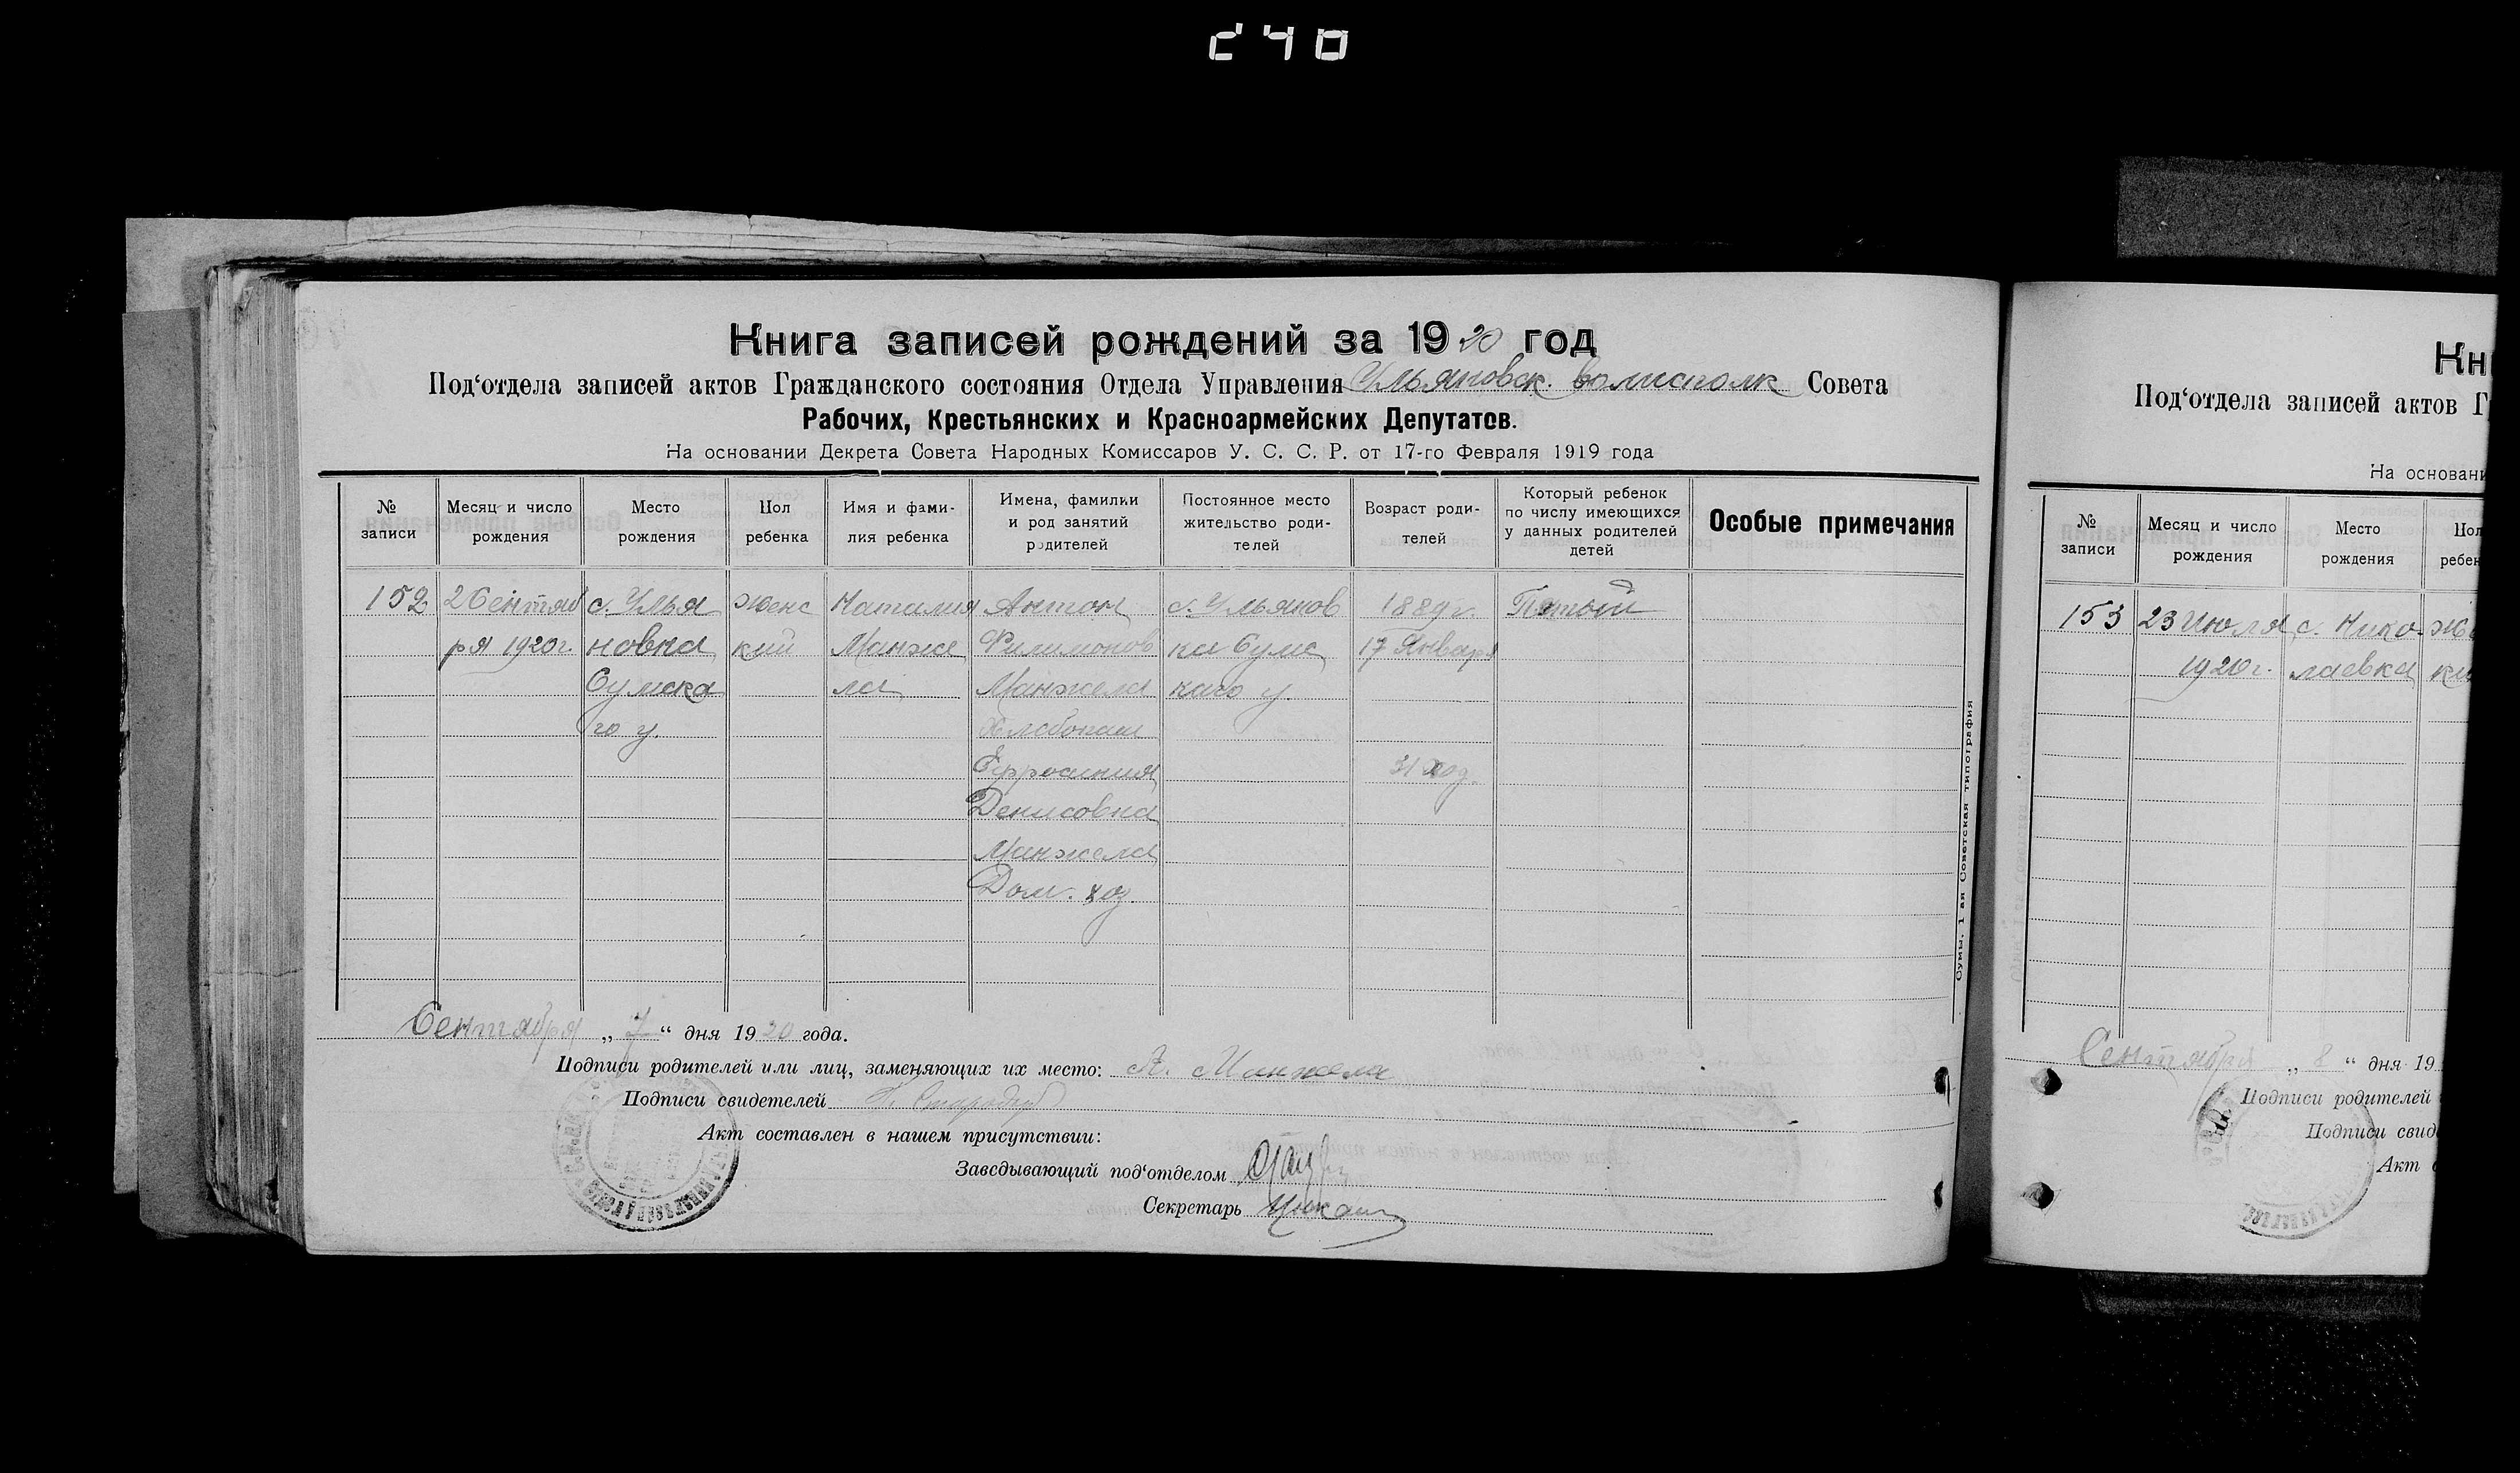 240
Книга записей рождений за 1920 год
Под‘отдела записей актов Гражданского состояния Отдела Управления Ульяновск. волисполк Совета
Рабочих, Крестьянских и Красноармейских Депутатов.
На основании Декрета Совета Народных Комиссаров У. С. С. Р. от 17-го Февраля 1919 года
№ записи
Месяц и число рождения
Место рождения
Пол ребенка
Имя и фами-
лия ребенка
Имена, фамилии
и род занятий
родителей
Постоянное место
жительство роди-
телей
Возраст роди-
телей
Который ребенок
по числу имеющихся
у данных родителей
детей
Особые примечания
152
2 Сентяб
ря 1920г.
с. Улья
новка
Сумска
го у.
Женс
кий
Наталия
Манже
ла
Антон
Филимонов
Манжела
Хлебопаш
Ефросиния
Денисовна
Манжела
Дом. хоз.
с. Ульянов
ка Сумс
каго у.
1889 г.
17 Января
31 год.
Пятый
Сентября „ 7 “ дня 1920 года.
Подписи родителей или лиц, заменяющих их место: А. Манжела
Подписи свидетелей
Акт составлен в нашем присутствии:
Заведывающий под‘отделом
Секретарь
Сумы, 1 ая Советская типография
Кни
Под‘отдела записей актов Г
На основани
№ записи
Месяц и число рождения
Место рождения
Пол
ребен
153
23 Июля
1920г.
с. Нико-
лаевка
Же
ки
Сентября „ 8 “ дня 19
Подписи родителей
Подписи свид
Акт